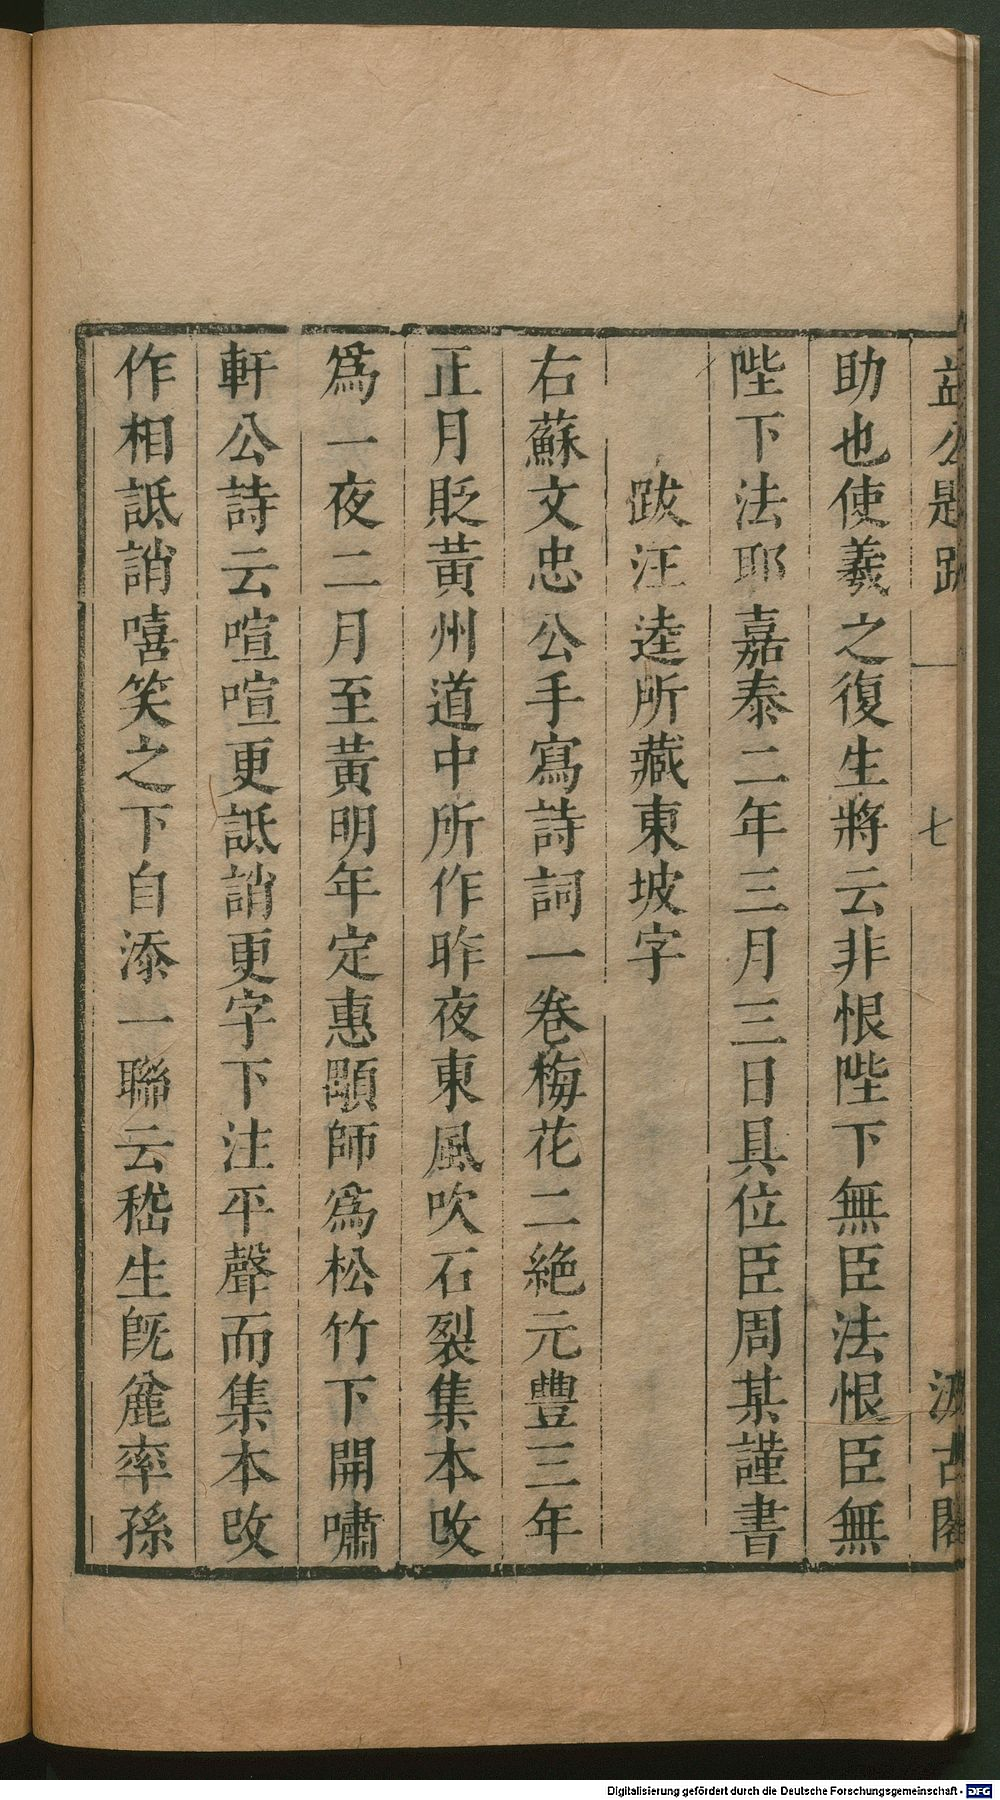 益公題跋 一 七 汲古閣
助也使羲之復生將云非恨陛下無臣法恨臣無
陛下法耶嘉泰二年三月三日具位臣周某謹書
跋汪逵所藏東坡字
右蘇文忠公手寫詩詞一卷梅花二絶元豐三年
正月貶黃州道中所作昨夜東風吹石裂集本改
爲一夜二月至黃明年定惠顒師爲松竹下開嘯
軒公詩云喧喧更詆誚更字下注平聲而集本改
作相詆誚嘻笑之下自添一聯云嵇生旣麄率孫
Digitalisierung gefördert durch die Deutsche Forschungsgemeinschaft - DFG